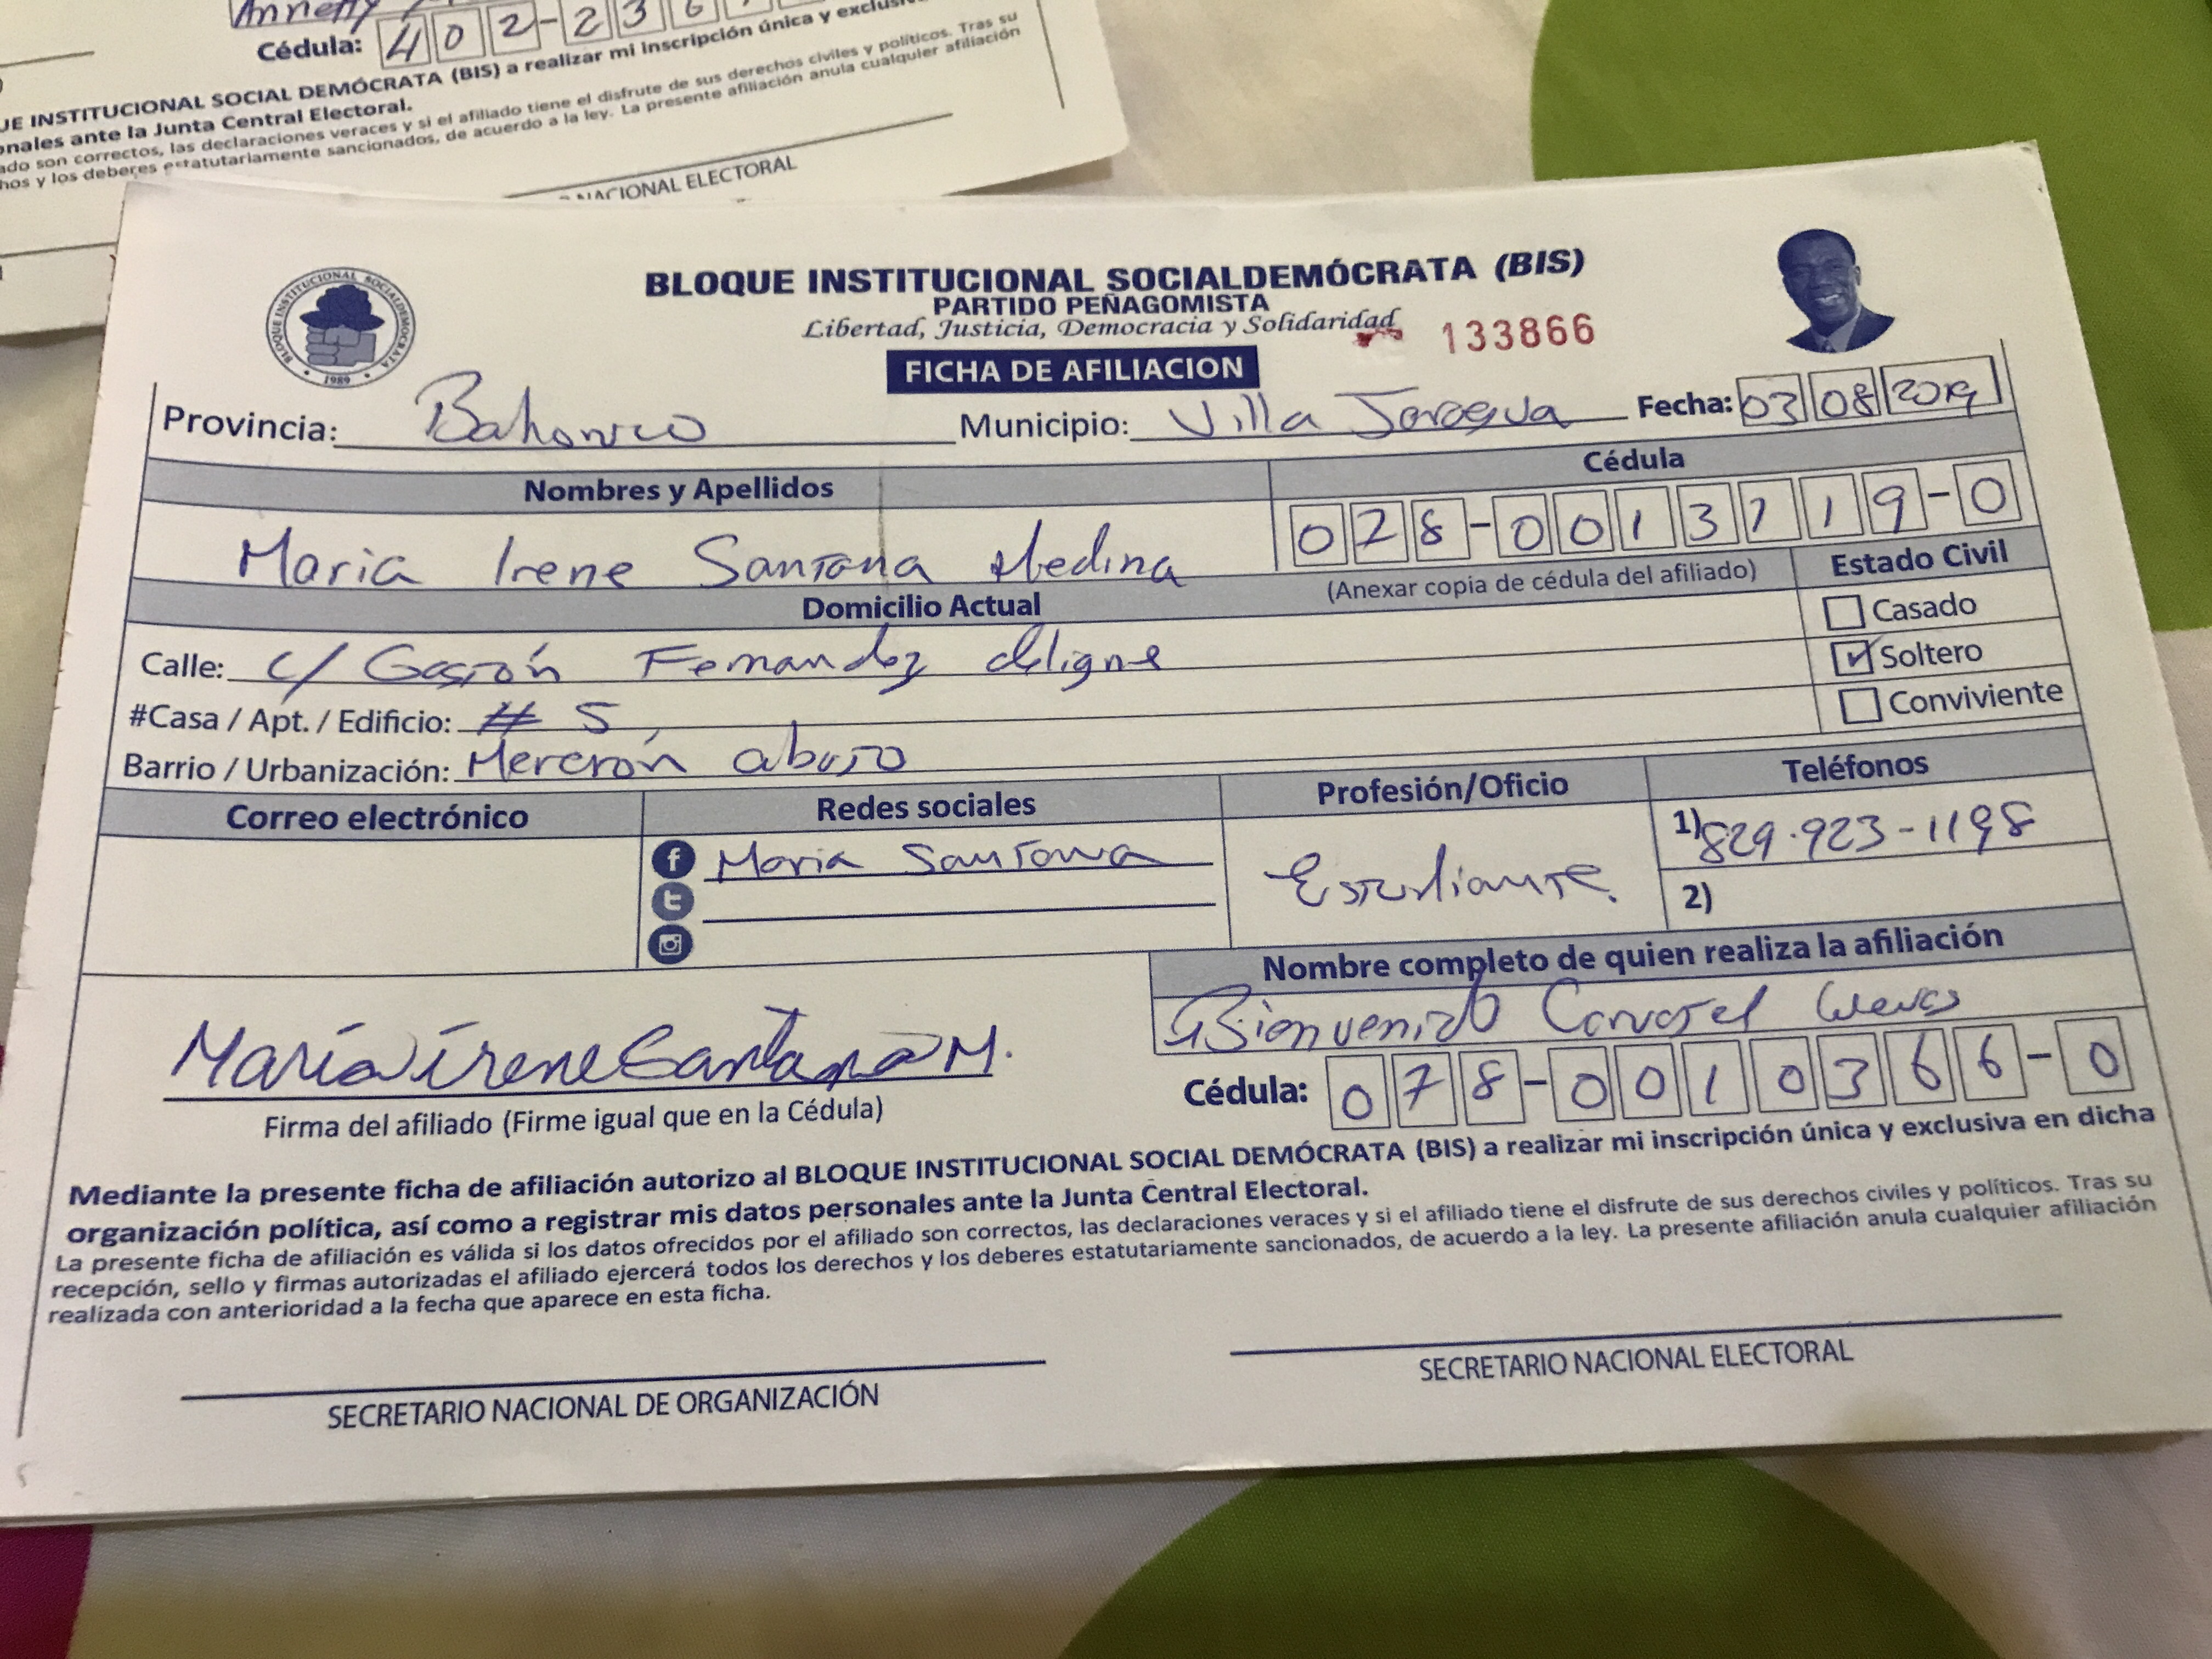 Annetty
Cédula: 402-236
UE INSTITUCIONAL SOCIAL DEMÓCRATA (BIS) a realizar mi inscripción única y exclusiv
onales ante la Junta Central Electoral.
ado son correctos, las declaraciones veraces y si el afiliado tiene el disfrute de sus derechos civiles y políticos. Tras su
hos y los deberes estatutariamente sancionados, de acuerdo a la ley. La presente afiliación anula cualquier afiliación
NACIONAL ELECTORAL
BLOQUE INSTITUCIONAL SOCIALDEMÓCRATA 1989
BLOQUE INSTITUCIONAL SOCIALDEMÓCRATA (BIS)
PARTIDO PEÑAGOMISTA
Libertad, Justicia, Democracia y Solidaridad
133866
FICHA DE AFILIACION
Provincia: Bahoruco Municipio: Villa Jaragua Fecha: 03 08 2019
Nombres y Apellidos Cédula
Maria Irene Santana Medina 078-0013719-0
(Anexar copia de cédula del afiliado) Estado Civil
Domicilio Actual
Casado
Calle: c/ Gastón Fernandez deligne
Soltero
#Casa / Apt. / Edificio: # 5
Conviviente
Barrio / Urbanización: Merción abajo
Correo electrónico Redes sociales Profesión/Oficio Teléfonos
Maria Santana Estudiante. 1) 829-923-1198
2)
Nombre completo de quien realiza la afiliación
Bienvenido Carvajal Cuevas
María irene Santana M.
Cédula: 078-0010366-0
Firma del afiliado (Firme igual que en la Cédula)
Mediante la presente ficha de afiliación autorizo al BLOQUE INSTITUCIONAL SOCIAL DEMÓCRATA (BIS) a realizar mi inscripción única y exclusiva en dicha
organización política, así como a registrar mis datos personales ante la Junta Central Electoral.
La presente ficha de afiliación es válida si los datos ofrecidos por el afiliado son correctos, las declaraciones veraces y si el afiliado tiene el disfrute de sus derechos civiles y políticos. Tras su
recepción, sello y firmas autorizadas el afiliado ejercerá todos los derechos y los deberes estatutariamente sancionados, de acuerdo a la ley. La presente afiliación anula cualquier afiliación
realizada con anterioridad a la fecha que aparece en esta ficha.
SECRETARIO NACIONAL DE ORGANIZACIÓN
SECRETARIO NACIONAL ELECTORAL